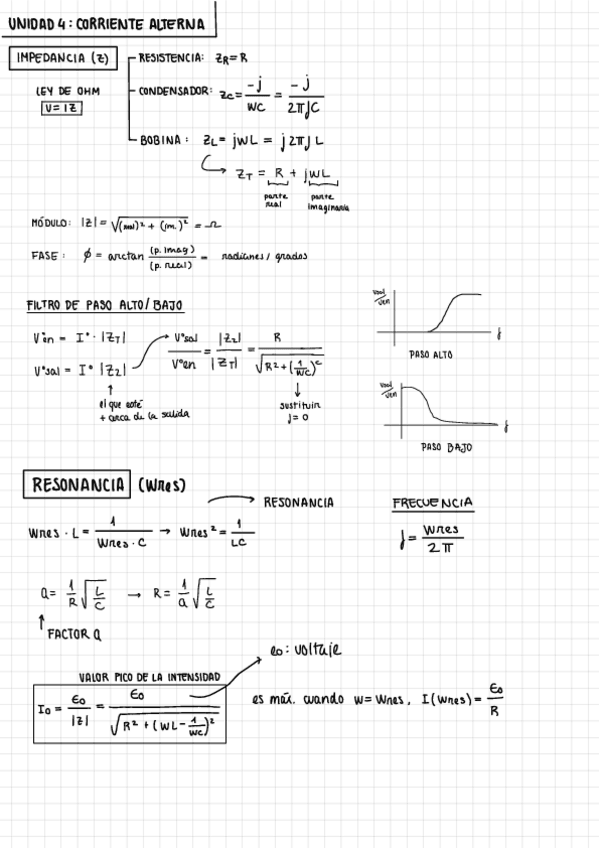 UNIDAD 4: CORRIENTE ALTERNA
IMPEDANCIA (Z)
RESISTENCIA: ZR = R
LEY DE OHM
V = IZ
CONDENSADOR: ZC = -j/WC = -j/2πfC
BOBINA: ZL = jWL = j2πfL
ZT = R + jWL
parte real
parte imaginaria
MÓDULO: |Z| = √((real)² + (im.)²) = Ω
FASE: φ = arctan (p. imag)/(p. real) = radianes/grados
FILTRO DE PASO ALTO/BAJO
V°en = I° · |ZT|
V°sal = I° |Z2|
V°sal/V°en = |Z2|/|ZT| = R/√(R² + (1/WC)²)
el que esté
+ cerca de la salida
sustituir
f = 0
Vsal/Ven
f
PASO ALTO
Vsal/Ven
f
PASO BAJO
RESONANCIA (Wres)
RESONANCIA
Wres · L = 1/(Wres · C) → Wres² = 1/LC
FRECUENCIA
f = Wres/2π
Q = 1/R √(L/C) → R = 1/Q √(L/C)
FACTOR Q
eo: voltaje
VALOR PICO DE LA INTENSIDAD
Io = εo/|Z| = εo/√(R² + (WL - 1/WC)²)
es máx. cuando w = Wres, I(Wres) = εo/R